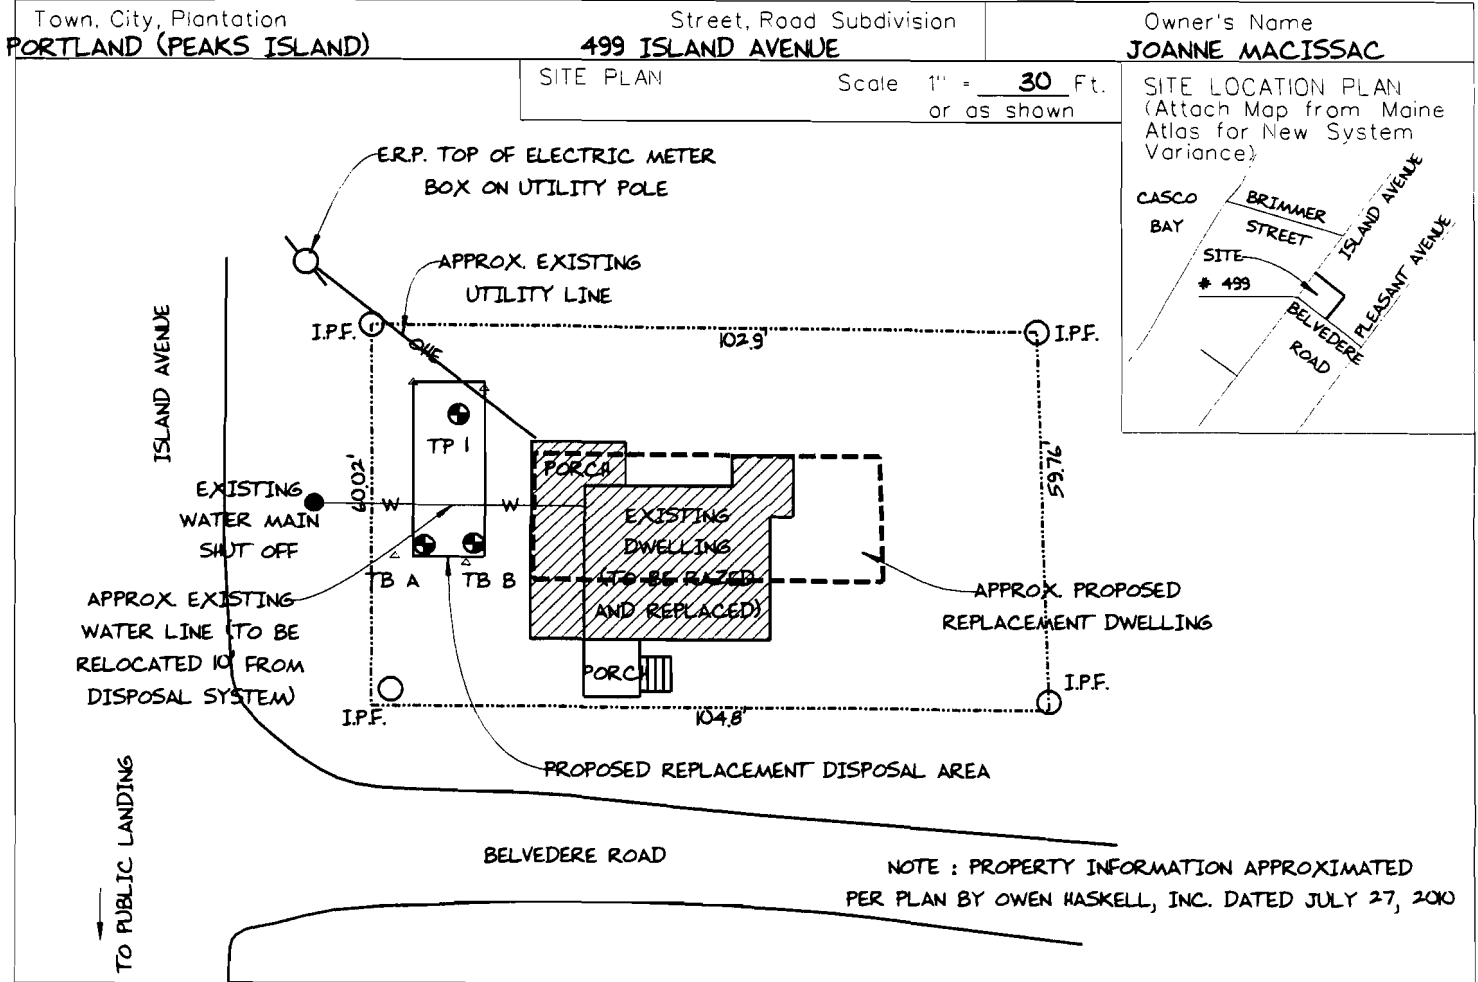 Town, City, Plantation
PORTLAND (PEAKS ISLAND)
Street, Road Subdivision
499 ISLAND AVENUE
Owner's Name
JOANNE MACISSAC
SITE PLAN
Scale 1" = 30 Ft.
or as shown
SITE LOCATION PLAN
(Attach Map from Maine
Atlas for New System
Variance)
CASCO
BAY
BRIMMER
STREET
ISLAND AVENUE
PLEASANT AVENUE
SITE
# 499
BELVEDERE
ROAD
E.R.P. TOP OF ELECTRIC METER
BOX ON UTILITY POLE
APPROX. EXISTING
UTILITY LINE
I.P.F.
OHE
102.9'
I.P.F.
ISLAND AVENUE
TP 1
60.02'
PORCH
59.76'
EXISTING
WATER MAIN
SHUT OFF
W
W
EXISTING
DWELLING
(TO BE RAZED
AND REPLACED)
TB A
TB B
APPROX. EXISTING
WATER LINE (TO BE
RELOCATED 10' FROM
DISPOSAL SYSTEM)
APPROX. PROPOSED
REPLACEMENT DWELLING
PORCH
I.P.F.
I.P.F.
104.8'
PROPOSED REPLACEMENT DISPOSAL AREA
TO PUBLIC LANDING
BELVEDERE ROAD
NOTE : PROPERTY INFORMATION APPROXIMATED
PER PLAN BY OWEN HASKELL, INC. DATED JULY 27, 2010